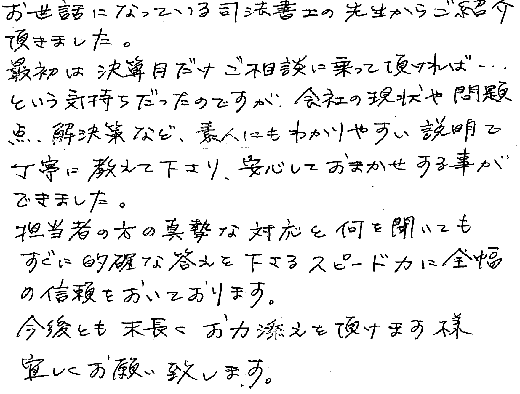 お世話になっている司法書士の先生からご紹介
頂きました。
最初は決算月だけご相談に乗って頂ければ…
という気持ちだったのですが、会社の現状や問題
点、解決策など、素人にもわかりやすい説明で
丁寧に教えて下さり、安心しておまかせする事が
できました。
担当者の方の真摯な対応と何を聞いても
すぐに的確な答えを下さるスピード力に全幅
の信頼をおいております。
今後とも末長くお力添えを頂けます様
宜しくお願い致します。